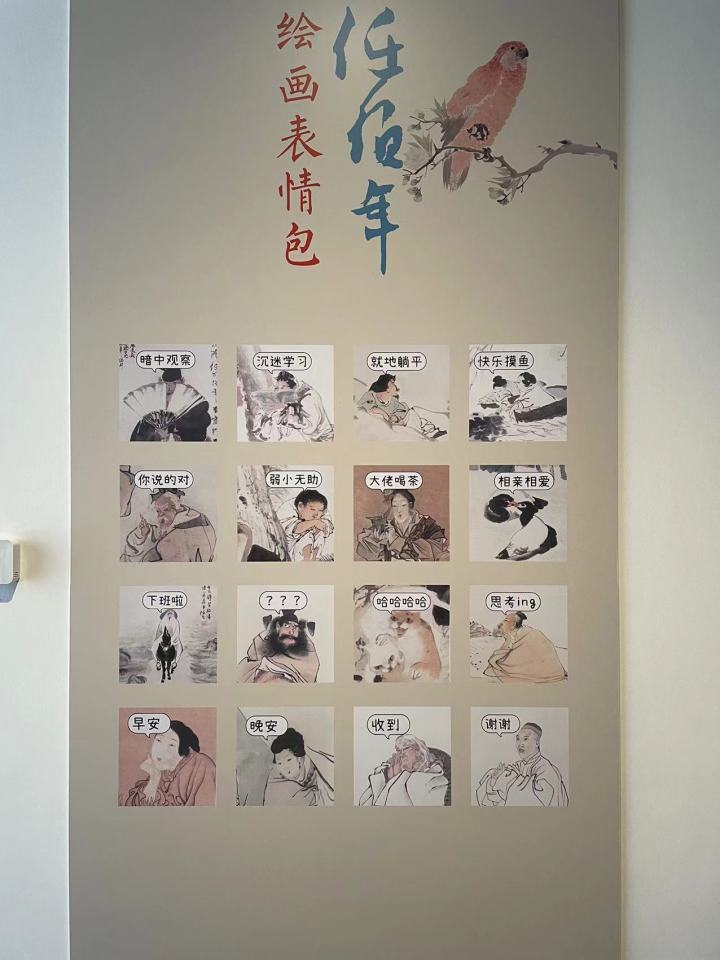 任伯年
绘画表情包
暗中观察
沉迷学习
就地躺平
快乐摸鱼
你说的对
弱小无助
大佬喝茶
相亲相爱
下班啦
？？？
哈哈哈哈
思考ing
早安
晚安
收到
谢谢